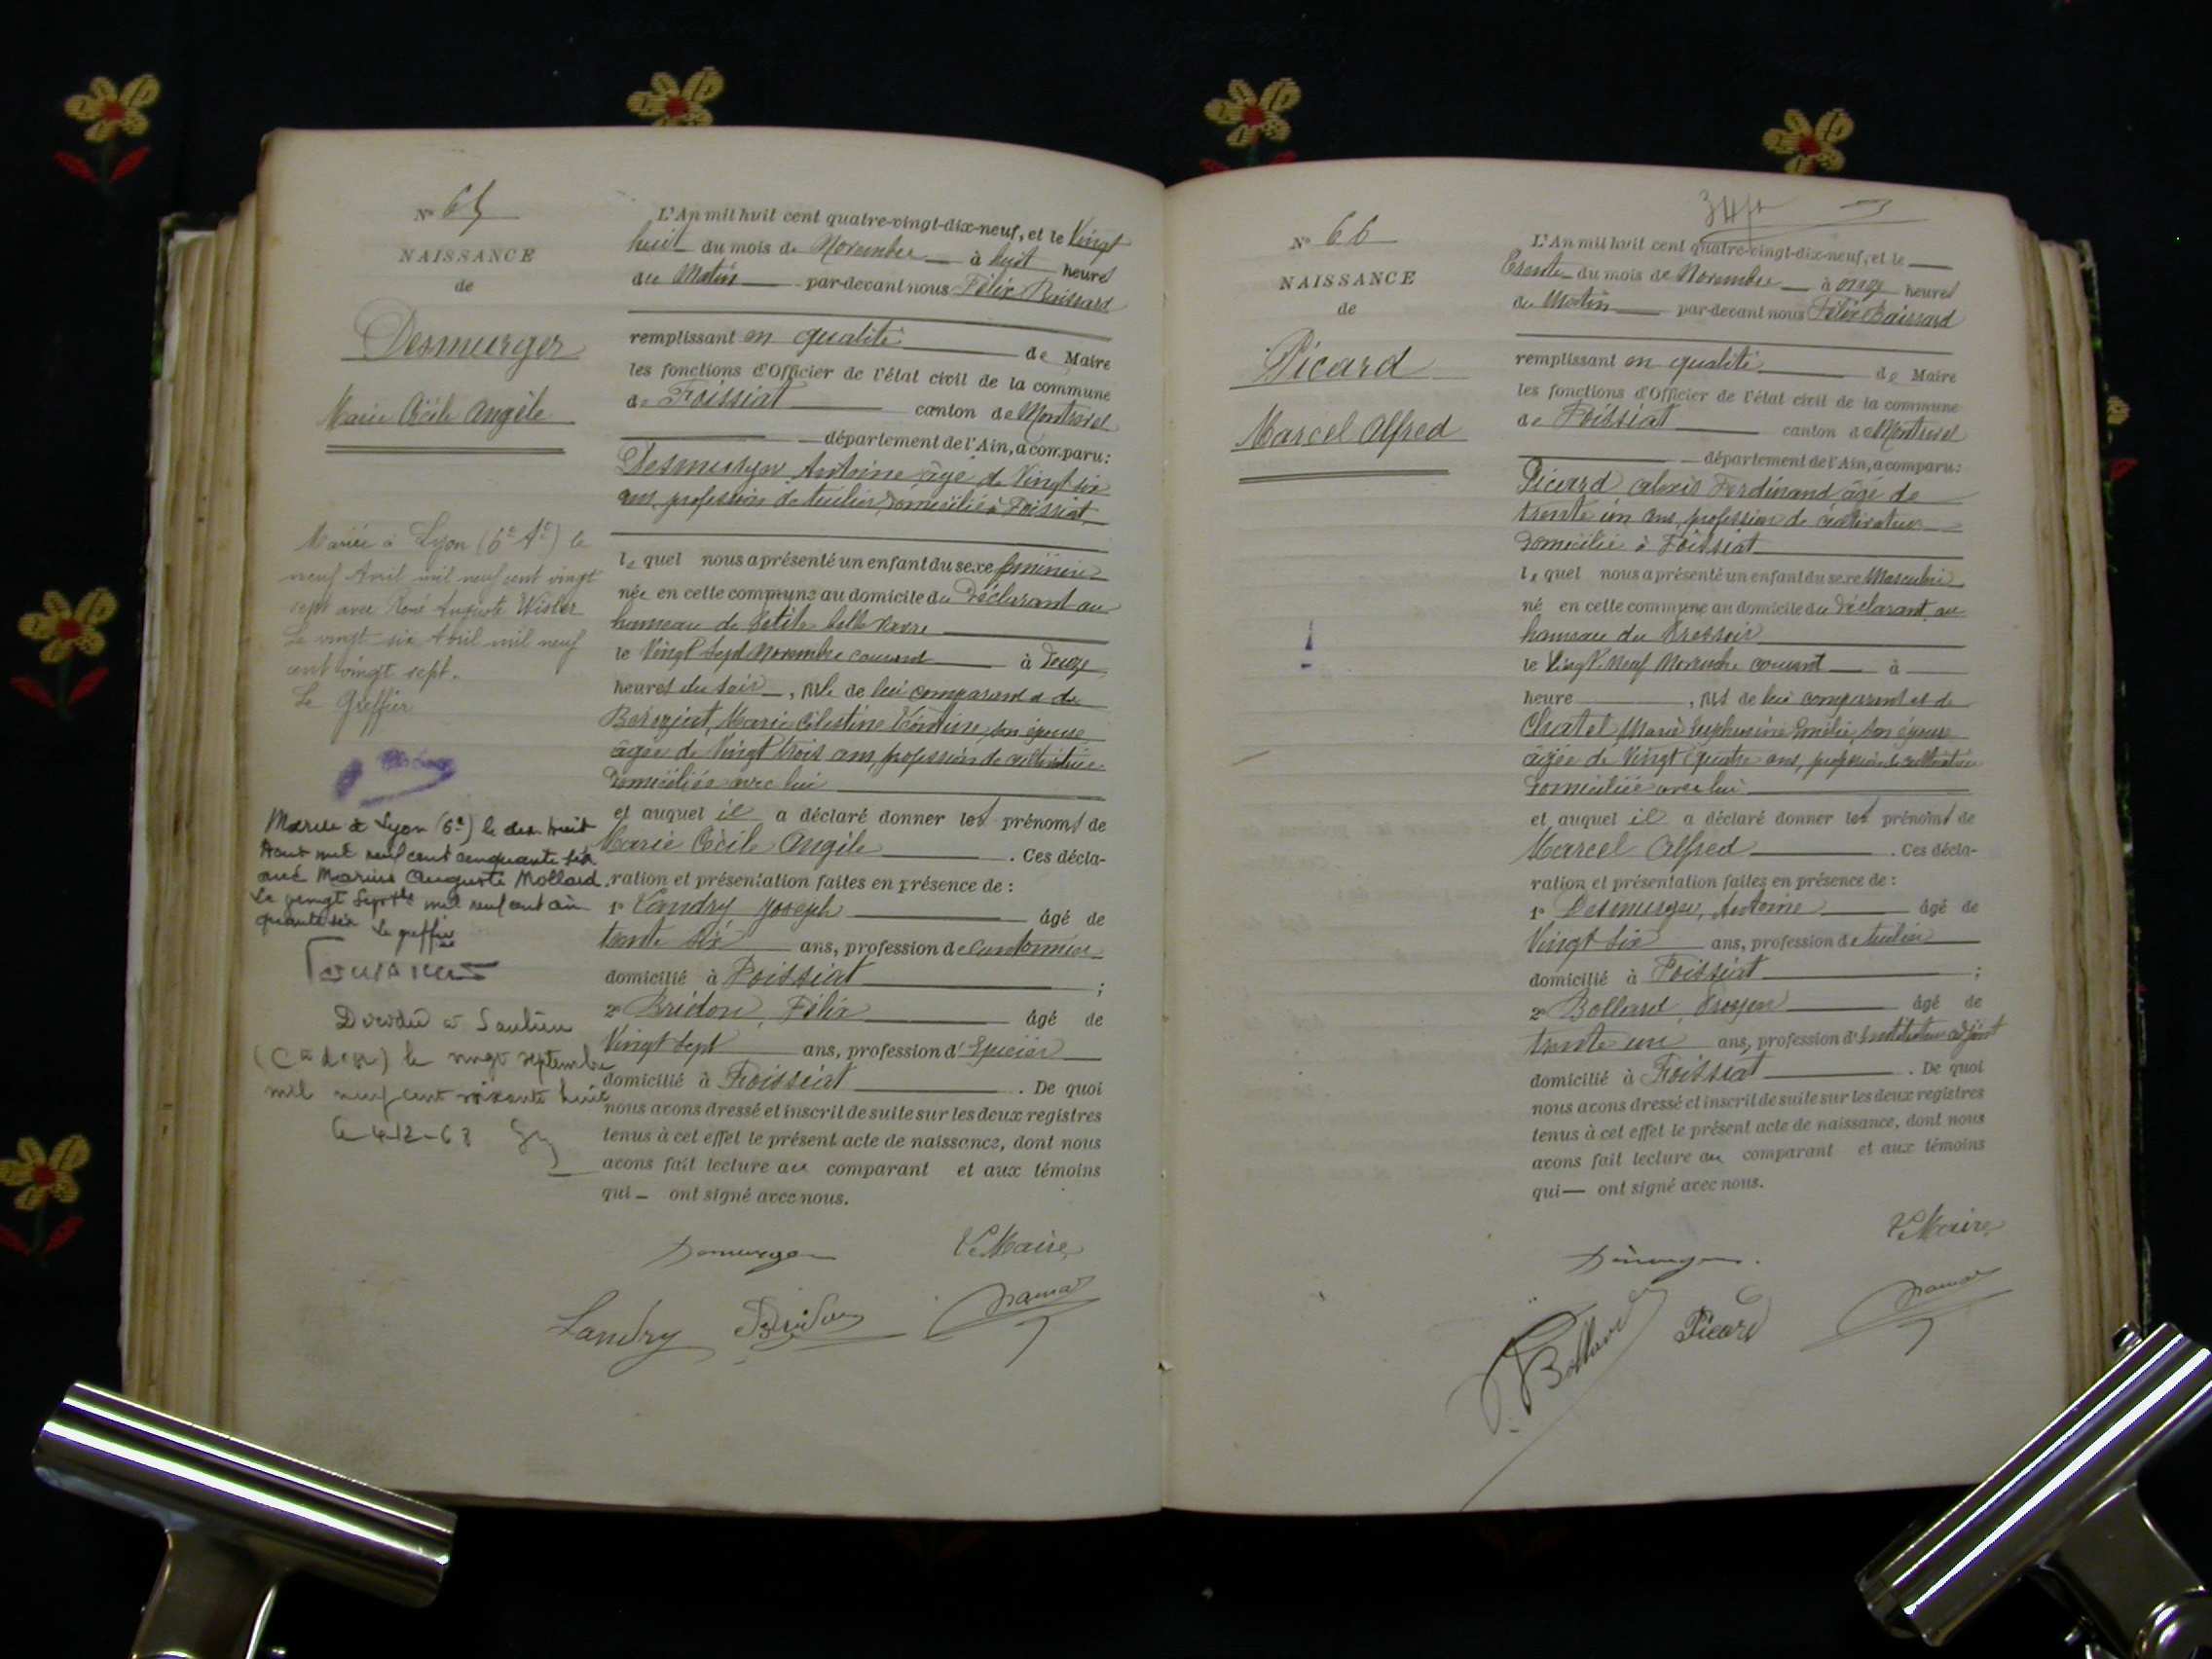 N° 65
NAISSANCE
de
Desmurger
Marie Cécile Angèle
Mariée à Lyon (6e Ar) le
neuf Avril mil neuf cent vingt
sept avec René Auguste
Le vingt six Avril mil neuf
cent vingt sept.
Le Greffier
Mariée à Lyon (6e) le dix huit
Aout mil neuf cent cinquante six
avec Marius Auguste Mollard.
Le vingt Septbre mil neuf cent cin
quante six Le greffier
Décédée à Saulieu
(Côte d'or) le vingt septembre
mil neuf cent soixante huit
le 4-12-68
L'An mil huit cent quatre-vingt-dix-neuf, et le Vingt
huit du mois de Novembre à huit heures
du Matin par-devant nous Félix
remplissant en qualité de Maire
les fonctions d'Officier de l'état civil de la commune
de Foissiat canton de Montrevel
département de l'Ain, a comparu:
Desmurger Antoine âgé de Vingt six
ans, profession de tuilier, domicilié à Foissiat
lequel nous a présenté un enfant du sexe féminin
née en cette commune au domicile du Déclarant au
hameau de
le Vingt Sept Novembre courant à Douze
heures du soir, née de lui comparant et de
Marie Célestine son épouse
âgée de Vingt trois ans, profession de cultivatrice
domiciliée avec lui
et auquel il a déclaré donner les prénoms de
Marie Cécile Angèle. Ces décla-
ration et présentation faites en présence de :
1° Landry Joseph âgé de
trente six ans, profession de
domicilié à Foissiat ;
2° Bridon, Félix âgé de
Vingt Sept ans, profession d'Epicier
domicilié à Foissiat. De quoi
nous avons dressé et inscrit de suite sur les deux registres
tenus à cet effet le présent acte de naissance, dont nous
avons fait lecture au comparant et aux témoins
qui ont signé avec nous.
Desmurger
Le Maire
Landry Bridon
N° 66
NAISSANCE
de
Picard
Marcel Alfred
L'An mil huit cent quatre-vingt-dix-neuf, et le
trente du mois de Novembre à onze heures
du Matin par-devant nous Félix
remplissant en qualité de Maire
les fonctions d'Officier de l'état civil de la commune
de Foissiat canton de Montrevel
département de l'Ain, a comparu:
Picard Alexis Ferdinand âgé de
trente un ans, profession de cultivateur
Domicilié à Foissiat
lequel nous a présenté un enfant du sexe Masculin
né en cette commune au domicile du Déclarant au
hameau du Pressoir
le Vingt Neuf Novembre courant à
heure, né de lui comparant et de
Chatel Marie Euphrosine Emilie, son épouse
âgée de Vingt quatre ans, profession de cultivatrice
domiciliée avec lui
et auquel il a déclaré donner les prénoms de
Marcel Alfred. Ces décla-
ration et présentation faites en présence de :
1° Desmurger, Antoine âgé de
Vingt Six ans, profession de tuilier
domicilié à Foissiat ;
2° Bolland âgé de
trente un ans, profession d'Instituteur adjoint
domicilié à Foissiat. De quoi
nous avons dressé et inscrit de suite sur les deux registres
tenus à cet effet le présent acte de naissance, dont nous
avons fait lecture au comparant et aux témoins
qui ont signé avec nous.
Le Maire
Desmurger
Bolland Picard